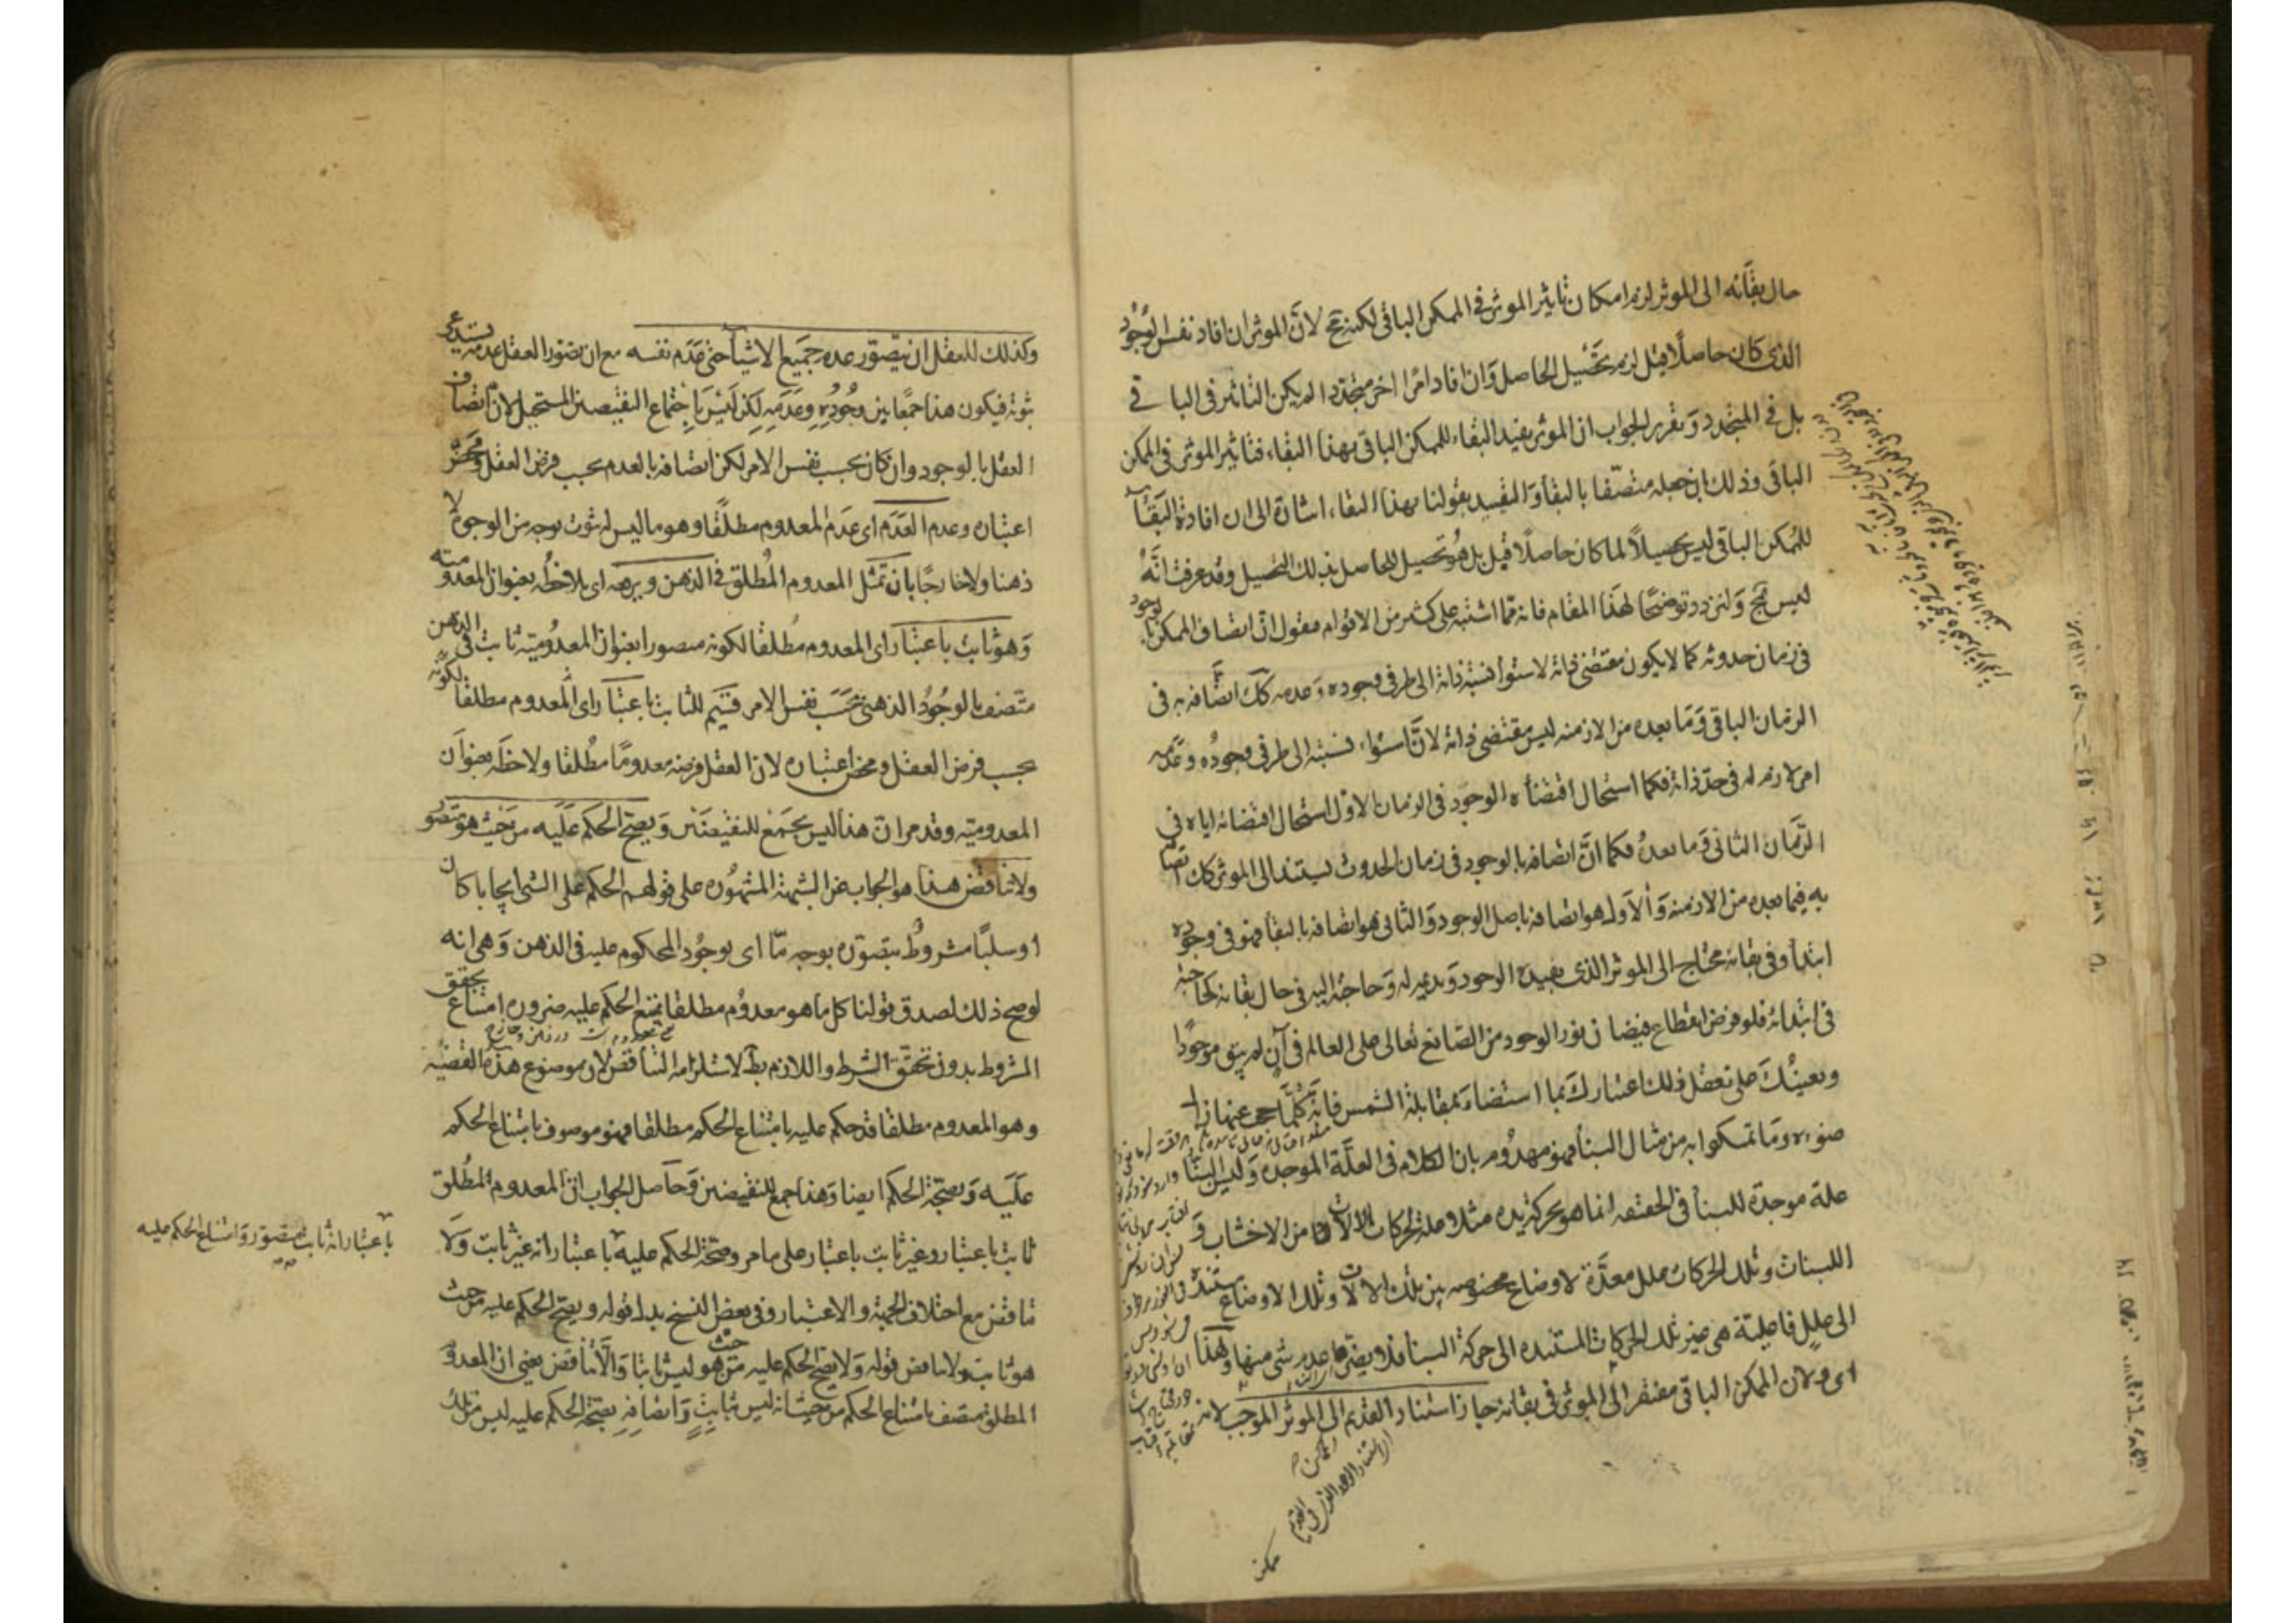 حال بقائه الى الموثر لزم امكان تاثير الموثر فى الممكن الباقى لكنه مح لانّ الموثر ان افاد نفس الوجود
الذى كان حاصلًا قبل لزم تحصيل الحاصل وان افاد امرًا اخر متجددا لم يكن التاثير فى الباقى
بل فى المتجدد وتقرير الجواب ان الموثر يفيد البقاء للممكن الباقى بهذا البقاء فتاثير الموثر فى الممكن
الباقى وذلك ان جعله متصفا بالبقاء والتقييد بقولنا بهذا البقاء اشارة الى ان افادة البقاء
للممكن الباقى ليس تحصيلًا لما كان حاصلًا قبل بل هو تحصيل للحاصل بذلك التحصيل وقد عرفت انّه
ليس بمح ولنزد توضيحًا لهذا المقام فانه ممّا اشتبه على كثير من الاقوام فنقول انّ اتصاف الممكن بالوجود
فى زمان حدوثه كما لا يكون مقتضى ذاته لاستواء نسبة ذاته الى طرفى وجوده وعدمه كك اتصافه به فى
الزمان الباقى وما بعده من الازمنه ليس مقتضى ذاته لانّ استواء نسبته الى طرفى وجوده وعدمه
امر لازم له فى حدّ ذاته فكما استحال اقتضاءه الوجود فى الزمان الاوّل استحال اقتضائه اياه فى
الزّمان الثانى وما بعده فكما انّ اتصافه بالوجود فى زمان الحدوث يستند الى الموثر كك اتصافه
به فيما بعده من الازمنه والاول هو اتصافه باصل الوجود والثانى هو اتصافه بالبقاء فهو فى وجوده
ابتداء وفى بقائه محتاج الى الموثر الذى يفيده الوجود ويديمه له وحاجته اليه فى حال بقائه كحاجته
فى ابتدائه فلو فرض انقطاع فيضان نور الوجود من الصّانع تعالى على العالم فى آن لم يبق موجودًا
ويعينك على تعقل ذلك اعتبارك بما استضاء بمقابلة الشمس فانّه كلّما حجب عنها زال
ضوءه وما تمسكوا به من مثال البناء فهو مهدوم بان الكلام فى العلّة الموجدة وليس البنّاء
علة موجدة للبناء فى الحقيقه انما هو بحركة يده مثلا علة لحركات الالات من الاخشاب و
اللبنات وتلك الحركات علل معدّة لاوضاع مخصوصه بين تلك الالات وتلك الاوضاع مستنده
الى علل فاعلية هى غير تلك الحركات المستنده الى حركة البناء فلا يضر عدم شى منها ولهذا
اى ولان الممكن الباقى مفتقر الى الموثر فى بقائه جاز استناد القديم الى الموثر الموجب لانه
ممكن
وكذلك للعقل ان يتصوّر عدم جميع الاشياء حتى عدم نفسه مع ان تصور العقل عدمه يستدعى
ثبوته فيكون هذا جمعًا بين وجوده وعدمه لكن ليس باجتماع النقيضين المستحيل لان اتصاف
العقل بالوجود وان كان بحسب نفس الامر لكن اتصافه بالعدم بحسب فرض العقل ومحض
اعتباره وعدم العدم اى عدم المعدوم مطلقًا وهو ما ليس له ثبوت بوجه من الوجوه لا
ذهنا ولا خارجًا بان تمثل المعدوم المطلق فى الذهن ويرفعه اى يلاحظه بعنوان المعدومية
وهو ثابت باعتبار اى المعدوم مطلقا لكونه متصورا بعنوان المعدومية ثابت فى الذهن
متصف بالوجود الذهنى بحسب نفس الامر قسيم للثابت باعتبار اى المعدوم مطلقا لكونه
بحسب فرض العقل ومحض اعتباره لان العقل فرضه معدومًا مطلقا ولاحظه بعنوان
المعدومية وقد مر ان هذا ليس بجمع للنقيضين ويصح الحكم عليه من حيث هو متصور
ولا تناقض هذا هو الجواب عن الشبهة المشهورة على قولهم الحكم على الشى ايجابا كان
او سلبًا مشروط بتصوره بوجه مّا اى بوجود المحكوم عليه فى الذهن وهى انه
لو صح ذلك لصدق قولنا كل ما هو معدوم مطلقا يمتنع الحكم عليه ضرورة امتناع تحقق
المشروط بدون تحقق الشرط واللازم بط لاستلزامه التناقض لان موضوع هذه القضيّه
وهو المعدوم مطلقا قد حكم عليه بامتناع الحكم مطلقا فهو موصوف بامتناع الحكم
عليه وبصحّة الحكم ايضا وهذا جمع للنقيضين وحاصل الجواب انّ المعدوم المطلق
ثابت باعتبار وغير ثابت باعتبار على ما مر وصحّة الحكم عليه باعتبار انه غير ثابت ولا
باعتبار انه ثابت متصور وامتناع الحكم عليه
تناقض مع اختلاف الجهة والاعتبار وفى بعض النسخ بدل قوله ويصح الحكم عليه من حيث
هو ثابت ولا تناقض قوله ولا يصح الحكم عليه من حيث هو ليس ثابتا والّا تناقض يعنى ان المعدوم
المطلق متصف بامتناع الحكم من حيث انه ليس بثابت واتصافه بصحّة الحكم عليه ليس من تلك